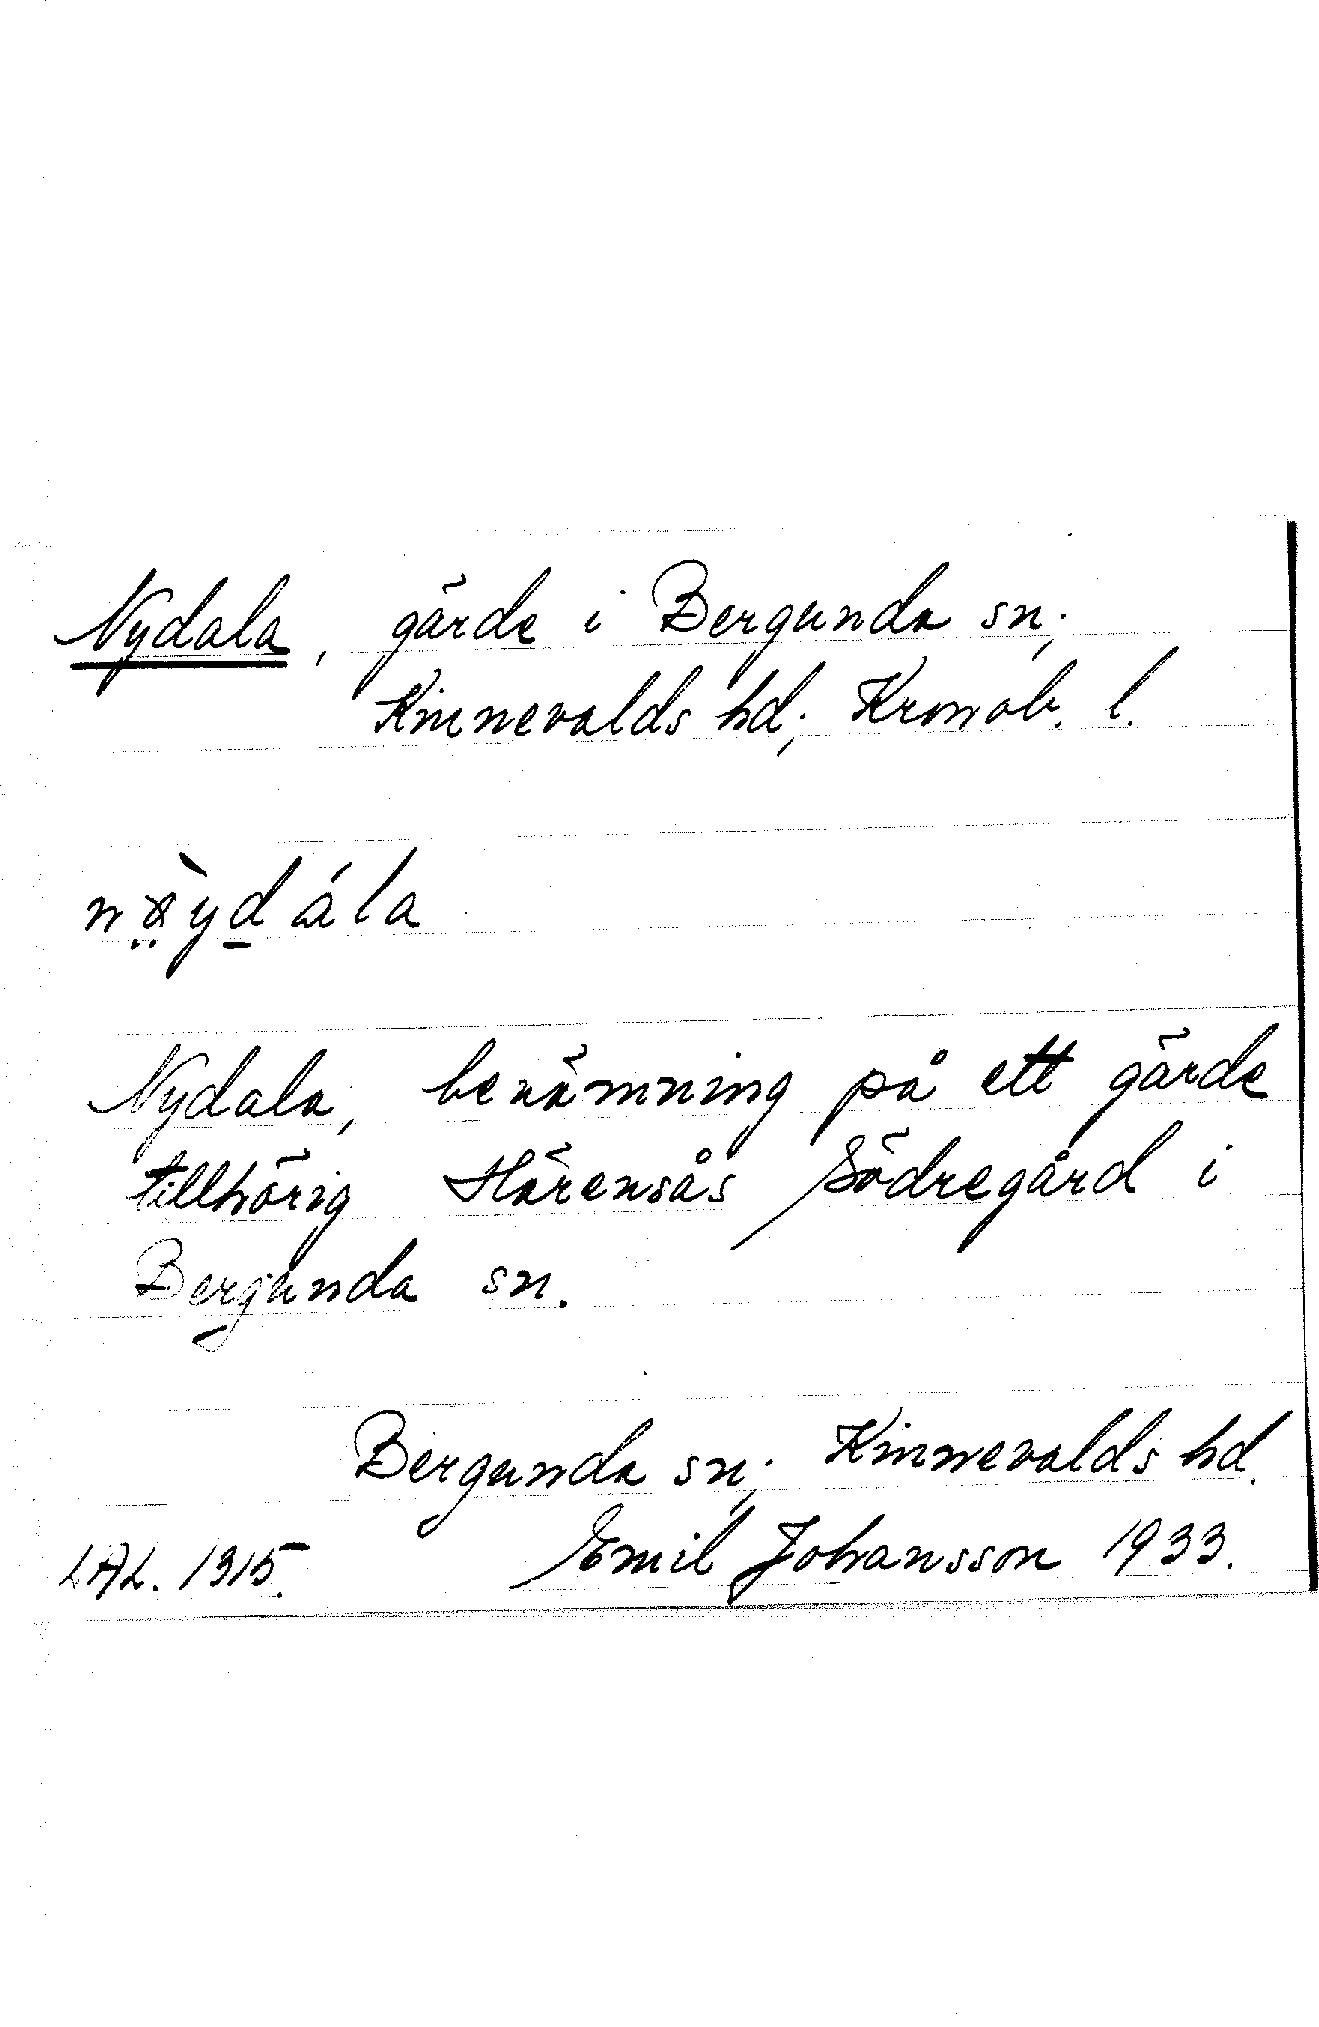 Nydala, gärde i Bergunda sn;
Kinnevalds hd; Kronob. l.
Nydala, benämning på ett gärde
tillhörig Härensås Södregård i
Bergunda sn.
Bergunda sn; Kinnevalds hd.
LAL. 1315. Emil Johansson 1933.